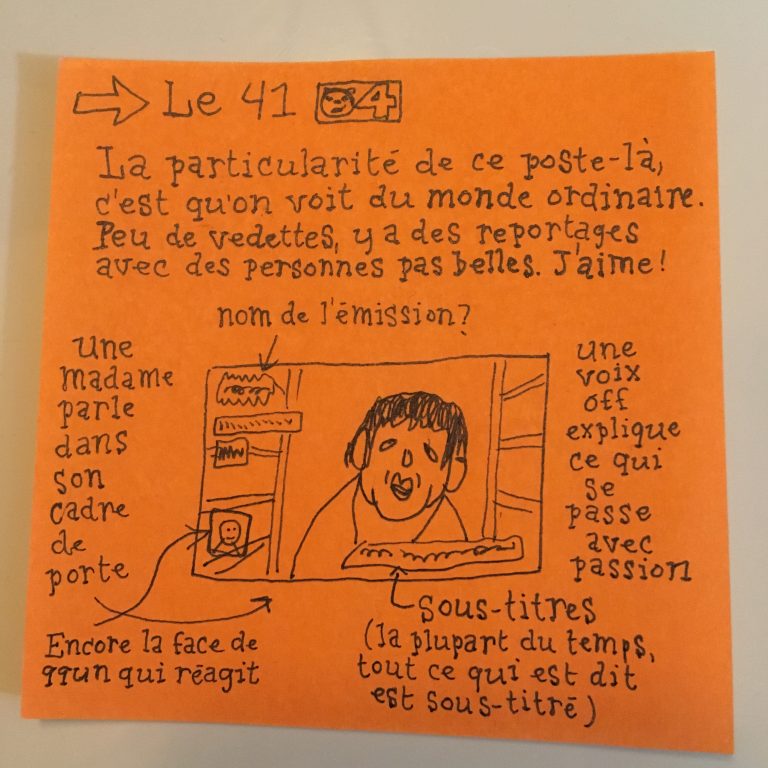 Le 41 4
La particularité de ce poste-là,
c'est qu'on voit du monde ordinaire.
Peu de vedettes, y a des reportages
avec des personnes pas belles. J'aime!
nom de l'émission?
une
madame
parle
dans
son
cadre
de
porte
une
voix
off
explique
ce qui
se
passe
avec
passion
Encore la face de
qqun qui réagit
sous-titres
(la plupart du temps,
tout ce qui est dit
est sous-titré)